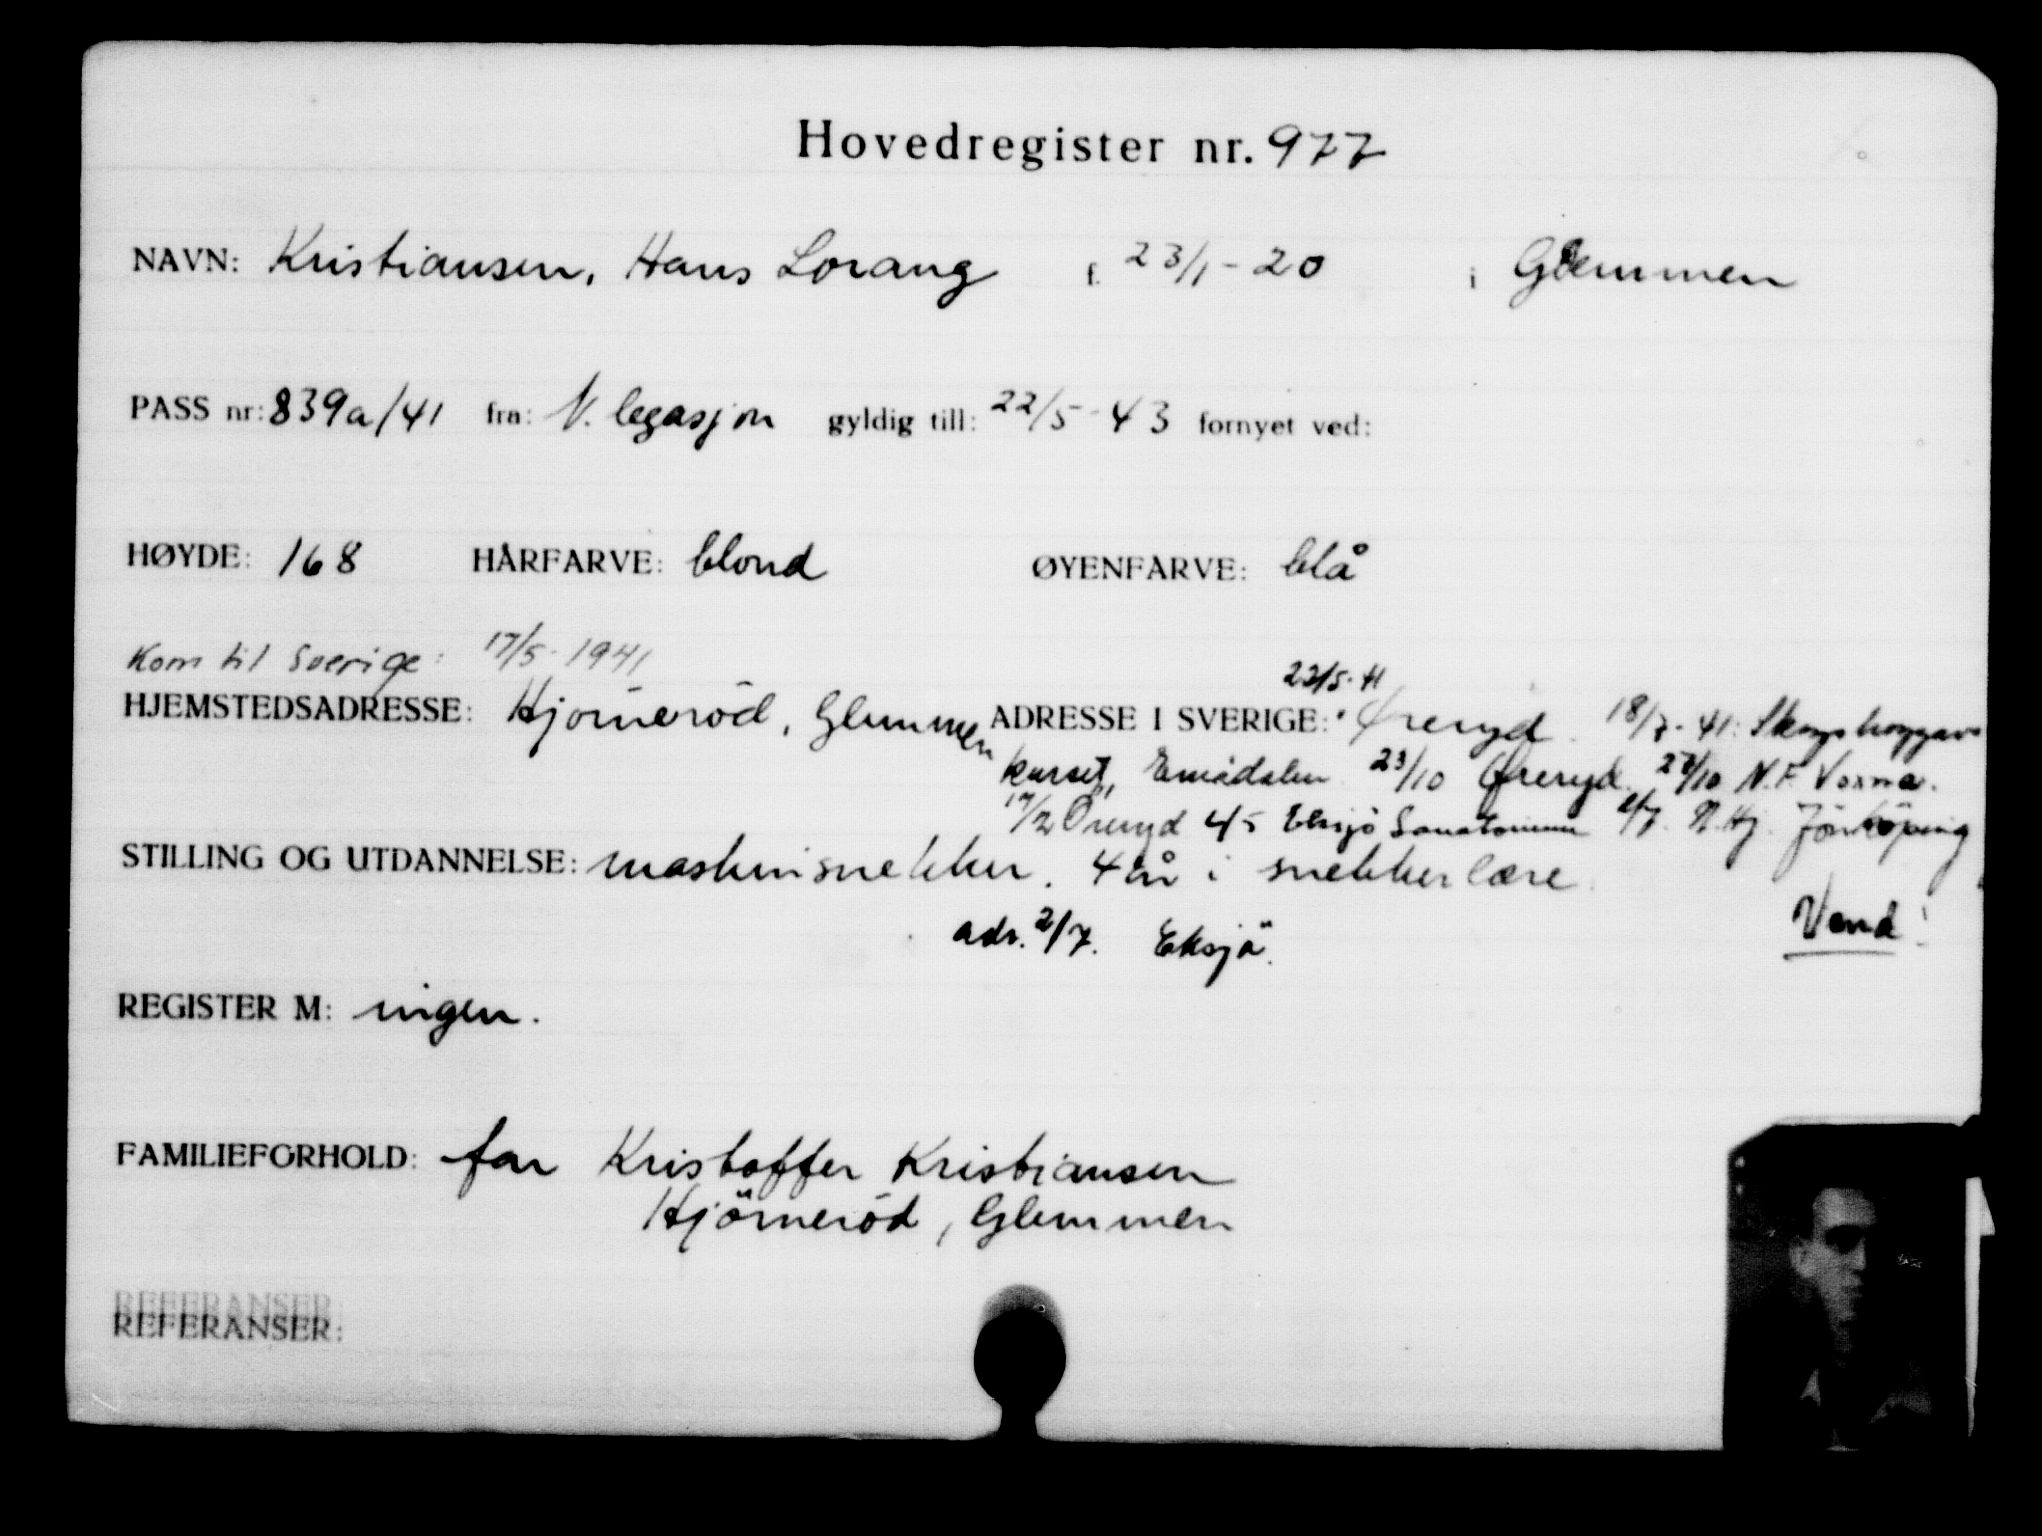 Hovedregister nr. 977
NAVN: Kristiansen, Hans Lorang f. 23/1-20 i Glemmen
PASS nr: 839a/41 fra: N. legasjon gyldig till: 22/5-43 fornyet ved:
HØYDE: 168 HÅRFARVE: blond ØYENFARVE: blå
Kom til Sverige: 17/5-1941
HJEMSTEDSADRESSE: Hjørnerød, Glemmen ADRESSE I SVERIGE: 22/5-41 Øreryd. 18/7-41: Skogshoggar
kurset, Emådalen 23/10 Øreryd. 27/10 N.F. Voxna.
17/2 Öreryd 4/5 Eksjö Sanatorium 2/7. N.Hj. Jönköping
STILLING OG UTDANNELSE: maskinsnekker. 4 år i snekkerlære.
adr. 2/7. Eksjö. Vend!
REGISTER M: ingen.
FAMILIEFORHOLD: far Kristoffer Kristiansen
Hjörneröd, Glemmen
REFERANSER: